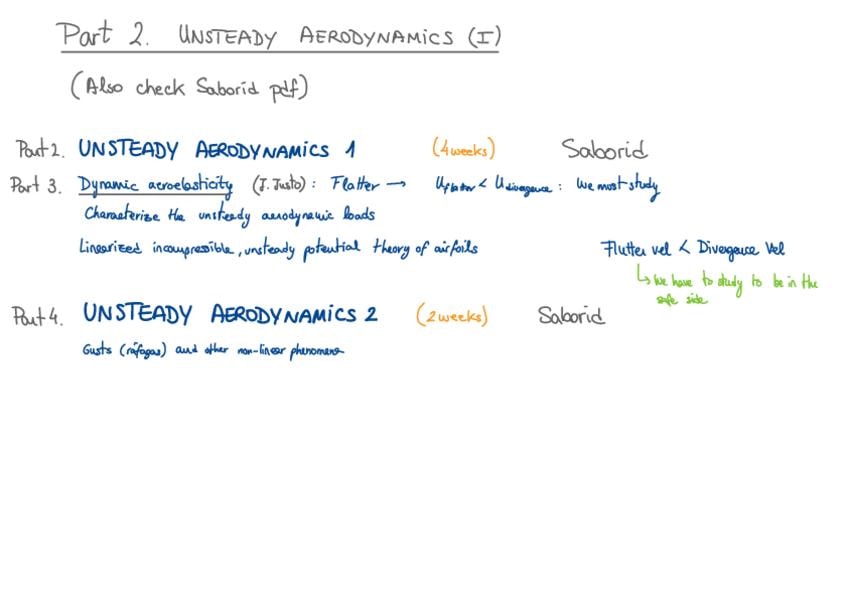 Part 2. UNSTEADY AERODYNAMICS (I)
(Also check Saborid pdf)
Part 2. UNSTEADY AERODYNAMICS 1 (4 weeks) Saborid
Part 3. Dynamic aeroelasticity (J. Justo) : Flatter → Uflatter < Udivergence : We must study
Characterize the unsteady aerodynamic loads
Linearized incompressible, unsteady potential theory of airfoils
Flutter vel < Divergence Vel
↳ We have to study to be in the
safe side
Part 4. UNSTEADY AERODYNAMICS 2 (2 weeks) Saborid
Gusts (ráfagas) and other non-linear phenomena